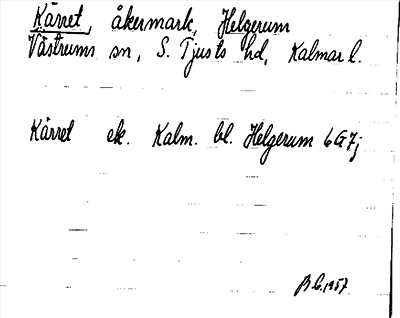 Kärret, åkermark, Helgerum
Västrums sn, S. Tjusts hd, Kalmar l.
Kärret ek. Kalm. bl. Helgerum 6G7j
1957